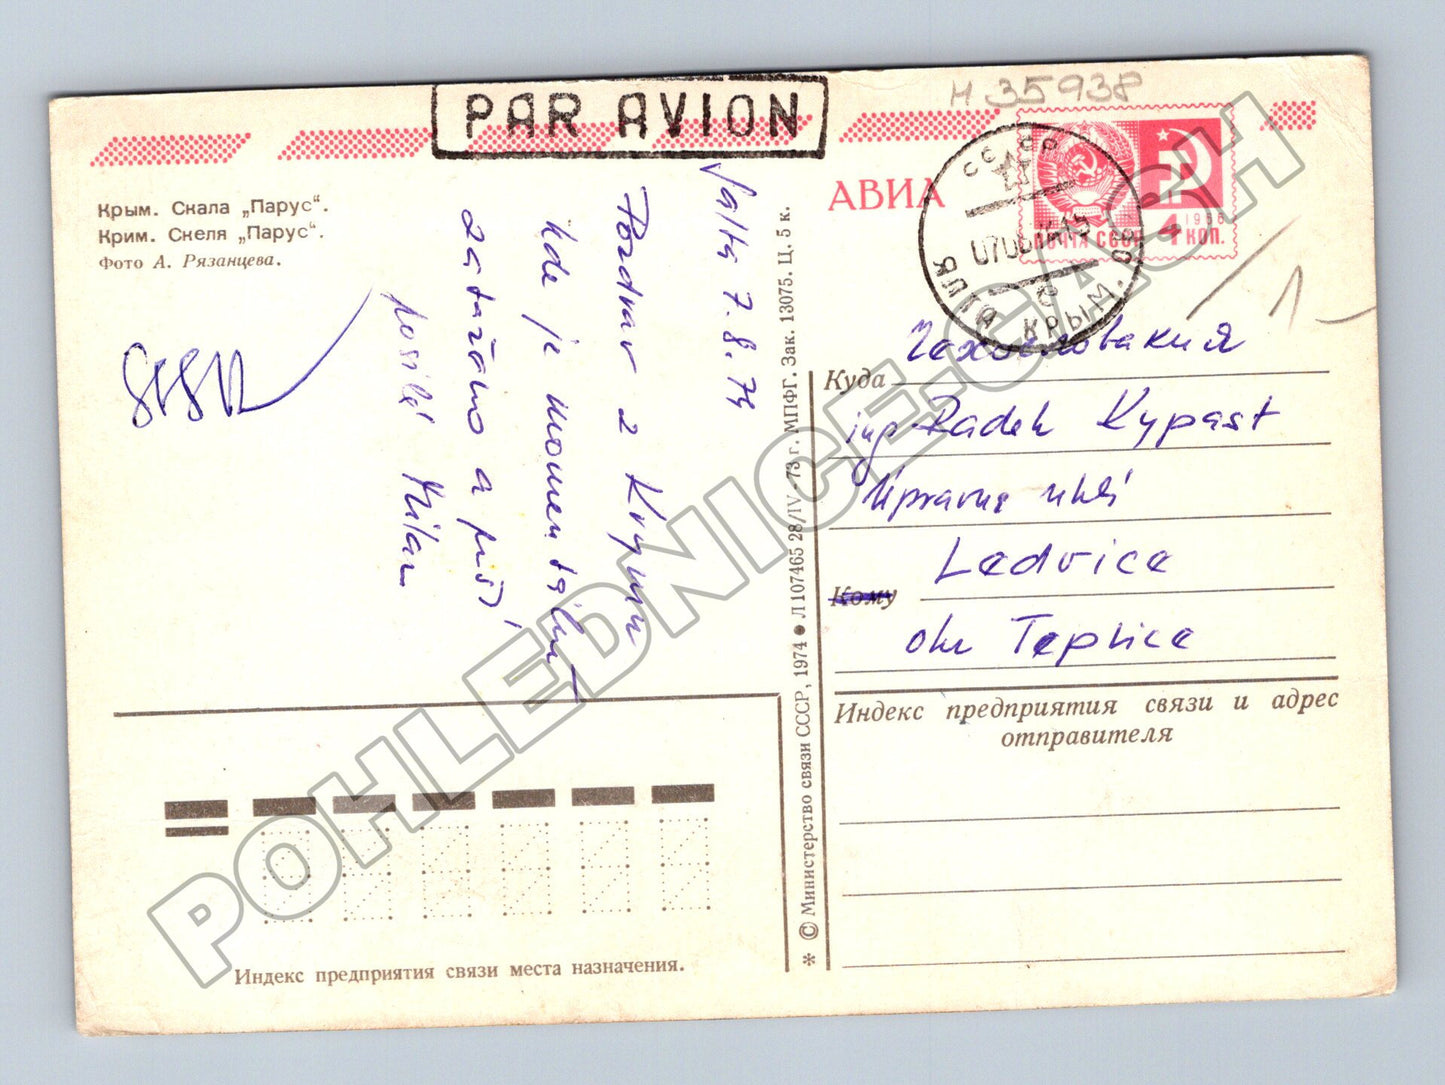 PAR AVION
И 35938
АВИА
1966
ПОЧТА СССР
4 КОП.
СССР
ЯЛТА КРЫМ. ОБ
Крым. Скала „Парус“.
Крим. Скеля „Парус“.
Фото А. Рязанцева.
Jalta 7.8.74
Pozdrav z Krymu
kde je momentálně
zataženo a prší
posílá Milan
Куда
Чехословакия
ing Radek
Úpravna uhlí
Ledvice
Кому
okr Teplice
Индекс предприятия связи и адрес
отправителя
Индекс предприятия связи места назначения.
* © Министерство связи СССР, 1974 ● Л 107465 28/IV-73 г. МПФГ. Зак. 13075. Ц. 5 к.
POHLEDNICE-CASH